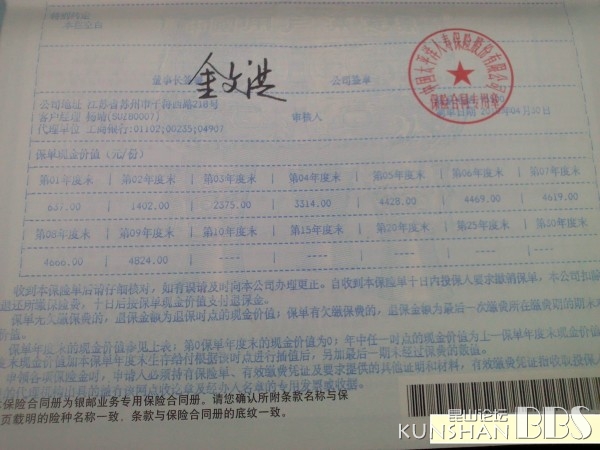 董事长签章 金文洪 公司签章
中国太平洋人寿保险股份有限公司
保险合同专用章
公司地址 江苏省苏州市干将西路218号
客户经理 杨婧(SUZB0007) 审核人
代理单位 工商银行:01102;00235;04907
保单现金价值 (元/份)
第01年度末 | 第02年度末 | 第03年度末 | 第04年度末 | 第05年度末 | 第06年度末 | 第07年度末
637.00 | 1402.00 | 2375.00 | 3314.00 | 4428.00 | 4469.00 | 4619.00
第08年度末 | 第09年度末 | 第10年度末 | 第15年度末 | 第20年度末 | 第25年度末 | 第30年度末
4666.00 | 4824.00 | ---- | ---- | ---- | ---- | ----
收到本保险单后请仔细核对，如有误请及时向本公司办理更正。自收到本保险单十日内投保人要求撤销保单，本公司扣除
退还所缴保险费，十日后按保单现金价值支付退保金。
保单无欠缴保费的，退保金额为退保时点的现金价值；保单有欠缴保费的，退保金额为最后一次缴费所在缴费期的期末
保单年度末的现金价值参见上表：第0保单年度末的现金价值为0；年中任一时点的现金价值为上一保单年度末现金价值
申领各项保险金时，申请人必须持有保险单、有效缴费凭证及要求提供的其他证明和材料，有效缴费凭证指收取投保人
保险合同册为银邮业务专用保险合同册。请您确认所附条款名称与保
页载明的险种名称一致，条款与保险合同册的底纹一致。
昆山论坛
KUNSHAN BBS